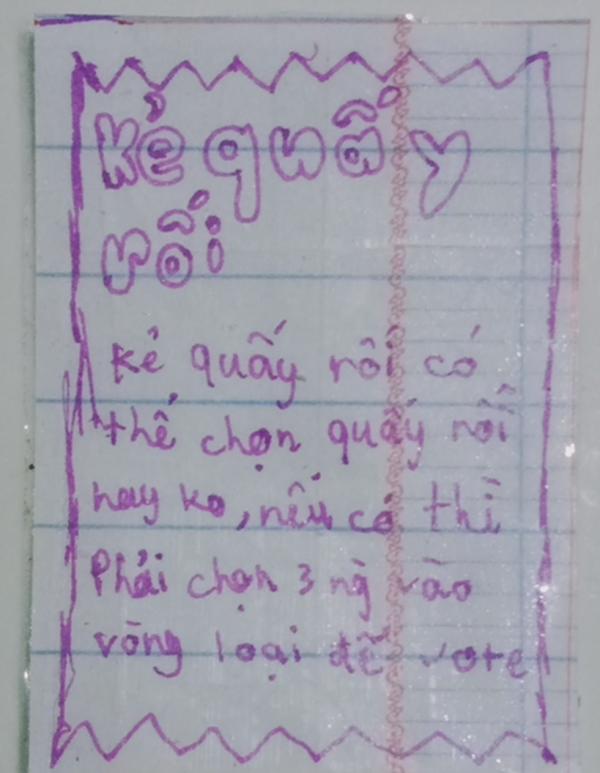 kẻ quấy
rối
kẻ quấy rối có
thể chọn quấy rối
hay ko, nếu có thì
Phải chọn 3 ng vào
vòng loại để vote